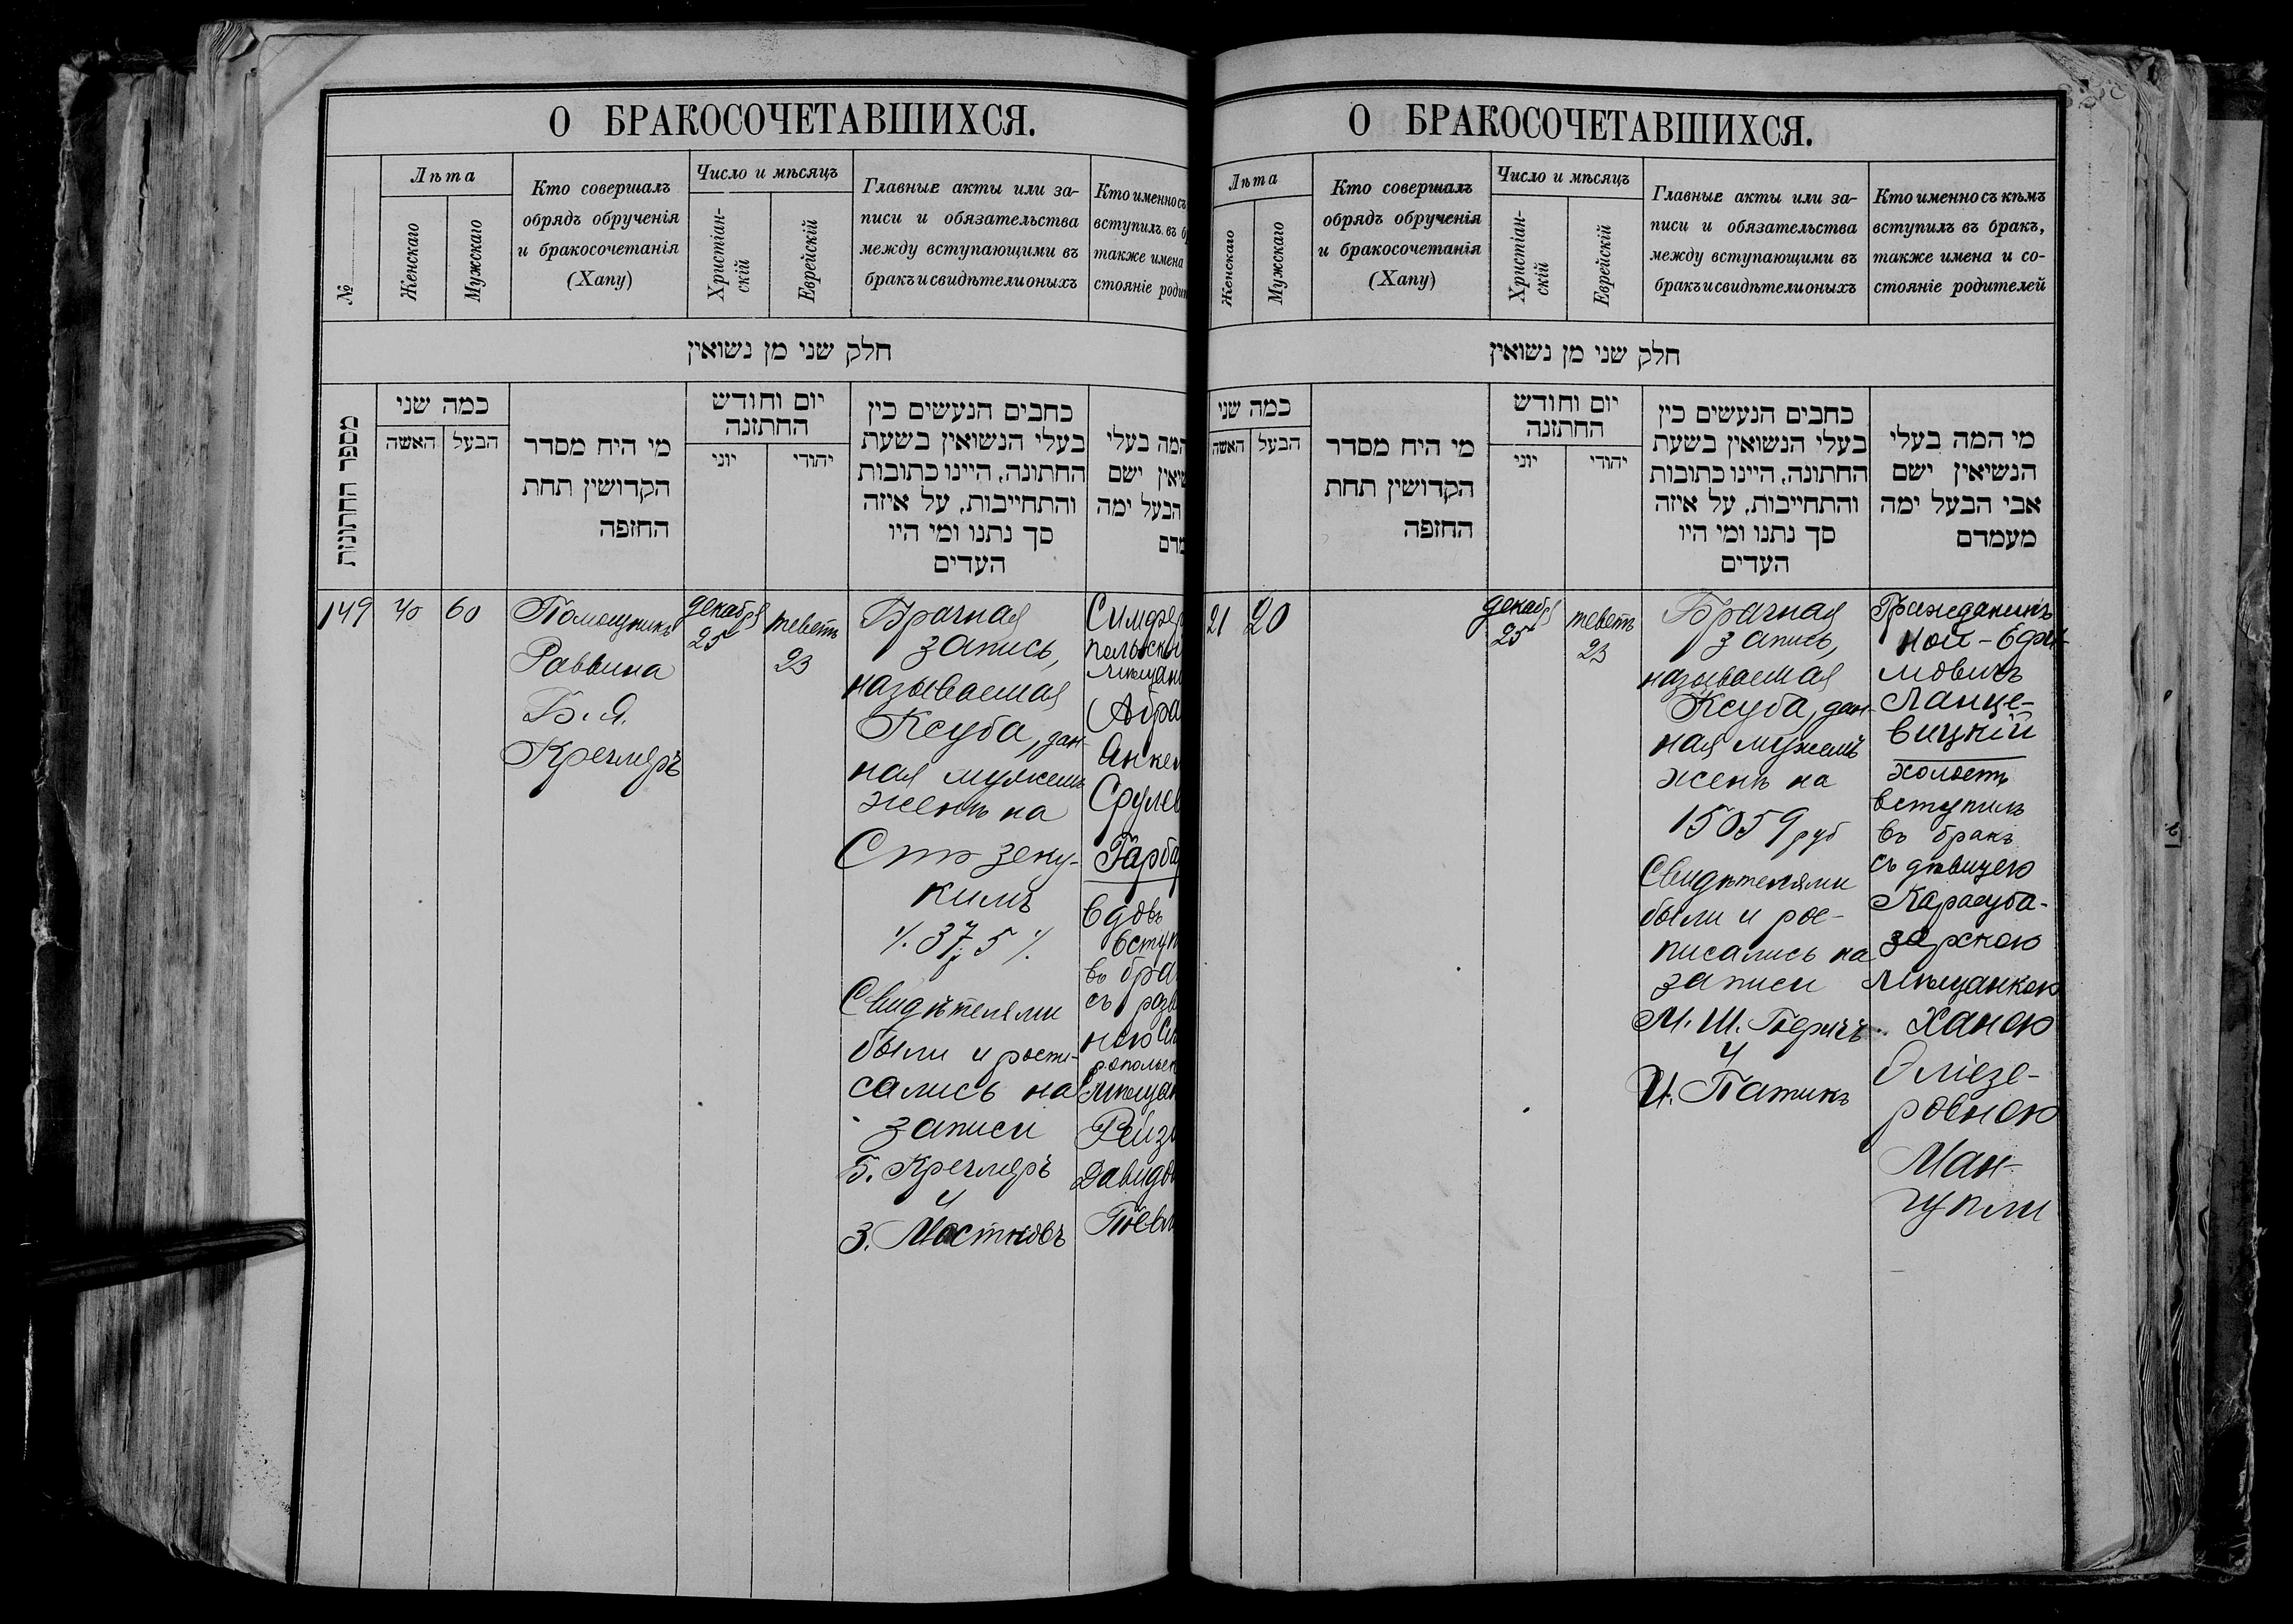 О БРАКОСОЧЕТАВШИХСЯ.
№
Лѣта
Женскаго
Мужскаго
Кто совершалъ
обрядъ обрученія
и бракосочетанія
(Хапу)
Число и мѣсяцъ
Христіан-
скій
Еврейскій
Главные акты или за-
писи и обязательства
между вступающими въ
бракъ и свидѣтели оныхъ
Кто именно съ
вступилъ въ б
также имена
стояніе роди
חלק שני מן נשואין
מספר החתונות
כמה שני
האשה
הבעל
מי היח מסדר
הקדושין תחת
החזפה
יום וחודש
החתזנה
יוני
יהודי
כחבים הנעשים כין
בעלי הנשואין בשעת
החתונה, היינו כתובות
והתחייבות, על איזה
סך נתנו ומי היו
העדים
המה בעלי
שיאין ישם
הבעל ימה
מדם
149
40
60
Помощникъ
Раввина
Б. Я.
Кречмеръ
декабря
25
теветъ
23
Брачная
запись,
называемая
Ксуба, дан-
ная мужемъ
женѣ на
Сто зеку-
кимъ
/. 37,5 /.
Свидѣтелями
были и роспи-
сались на
записи
Б. Кречмеръ
и
З. Мостковъ
Симфер
польскі
мѣщан
Абра
Анке
Срулев
Гарба
вдовъ
вступ
въ бра
съ разв
ною Си
ропольск
мѣщан
Рейз
Давидов
О БРАКОСОЧЕТАВШИХСЯ.
Лѣта
Женскаго
Мужскаго
Кто совершалъ
обрядъ обрученія
и бракосочетанія
(Хапу)
Число и мѣсяцъ
Христіан-
скій
Еврейскій
Главные акты или за-
писи и обязательства
между вступающими въ
бракъ и свидѣтели оныхъ
Кто именно съ кѣмъ
вступилъ въ бракъ,
также имена и со-
стояніе родителей
חלק שני מן נשואין
כמה שני
האשה
הבעל
מי היח מסדר
הקדושין תחת
החזפה
יום וחודש
החתזנה
יוני
יהודי
כחבים הנעשים כין
בעלי הנשואין בשעת
החתונה, היינו כתובות
והתחייבות, על איזה
סך נתנו ומי היו
העדים
מי המה בעלי
הנשיאין ישם
אבי הבעל ימה
מעמדם
21
20
декабря
25
теветъ
23
Брачная
запись,
называемая
Ксуба, дан-
ная мужемъ
женѣ на
15059 руб
Свидѣтелями
были и рос-
писались на
записи
М. Ш.
и
И. Патикъ
Гражданинъ
Ной-Ефи-
мовичъ
Ланце-
вицкій
холостъ
вступилъ
въ бракъ
съ дѣвицею
Карасуба-
зарскою
мѣщанкою
Ханою
Эліезе-
ровною
Ман-
гупли